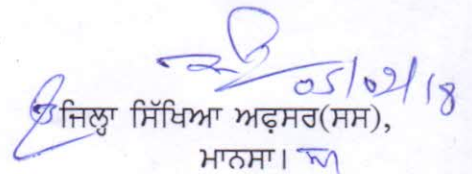 05/02/18
ਜਿਲ੍ਹਾ ਸਿੱਖਿਆ ਅਫ਼ਸਰ(ਸਸ),
ਮਾਨਸਾ।